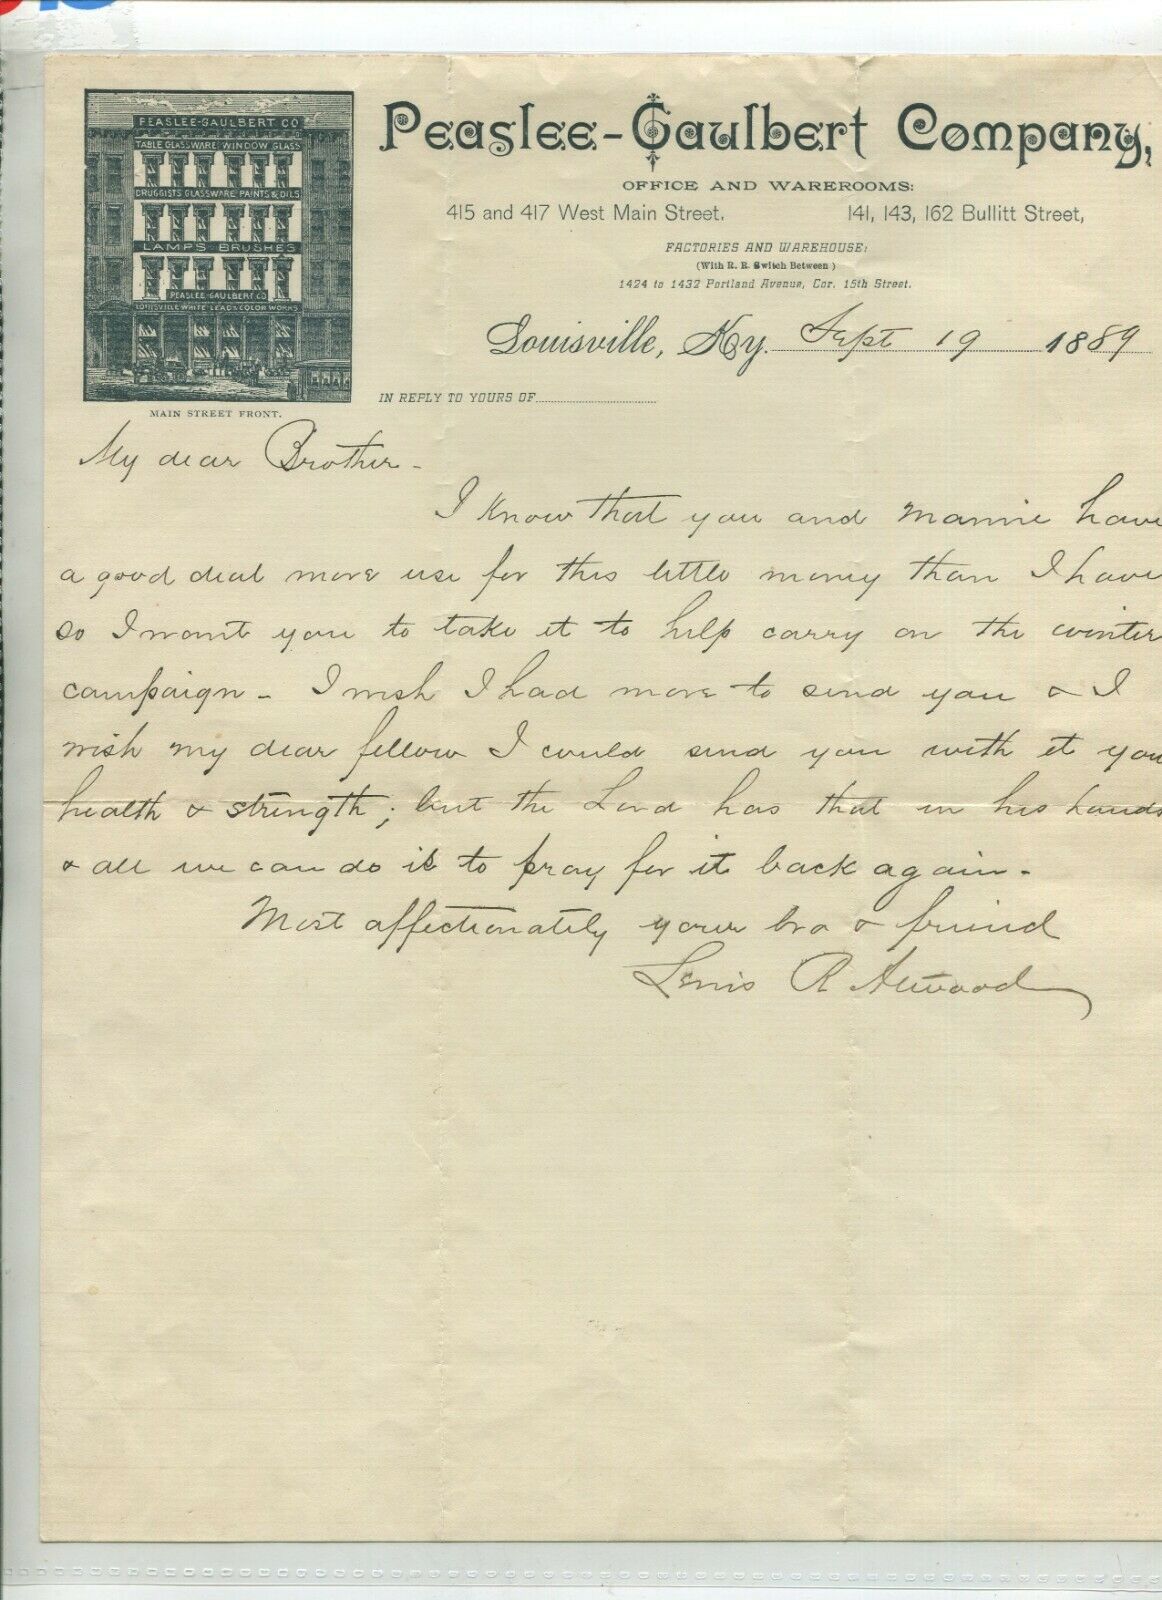 PEASLEE-GAULBERT CO
TABLE GLASSWARE WINDOW GLASS
DRUGGISTS GLASSWARE PAINTS & OILS
LAMPS BRUSHES
PEASLEE-GAULBERT CO
LOUISVILLE WHITE LEAD & COLOR WORKS
MAIN STREET FRONT.
Peaslee-Gaulbert Company,
OFFICE AND WAREROOMS:
415 and 417 West Main Street, 141, 143, 162 Bullitt Street,
FACTORIES AND WAREHOUSE:
(With R. R. Switch Between)
1424 to 1432 Portland Avenue, Cor. 15th Street.
Louisville, Ky. Sept 19 1889
IN REPLY TO YOURS OF
My dear Brother -
I know that you and Mamie have
a good deal more use for this little money than I have
so I want you to take it to help carry on the winter
campaign - I wish I had more to send you & I
wish my dear fellow I could send you with it you
health & strength; but the Lord has that in his hands
& all we can do is to pray for it back again -
Most affectionately your bro & friend
Lewis R Atwood